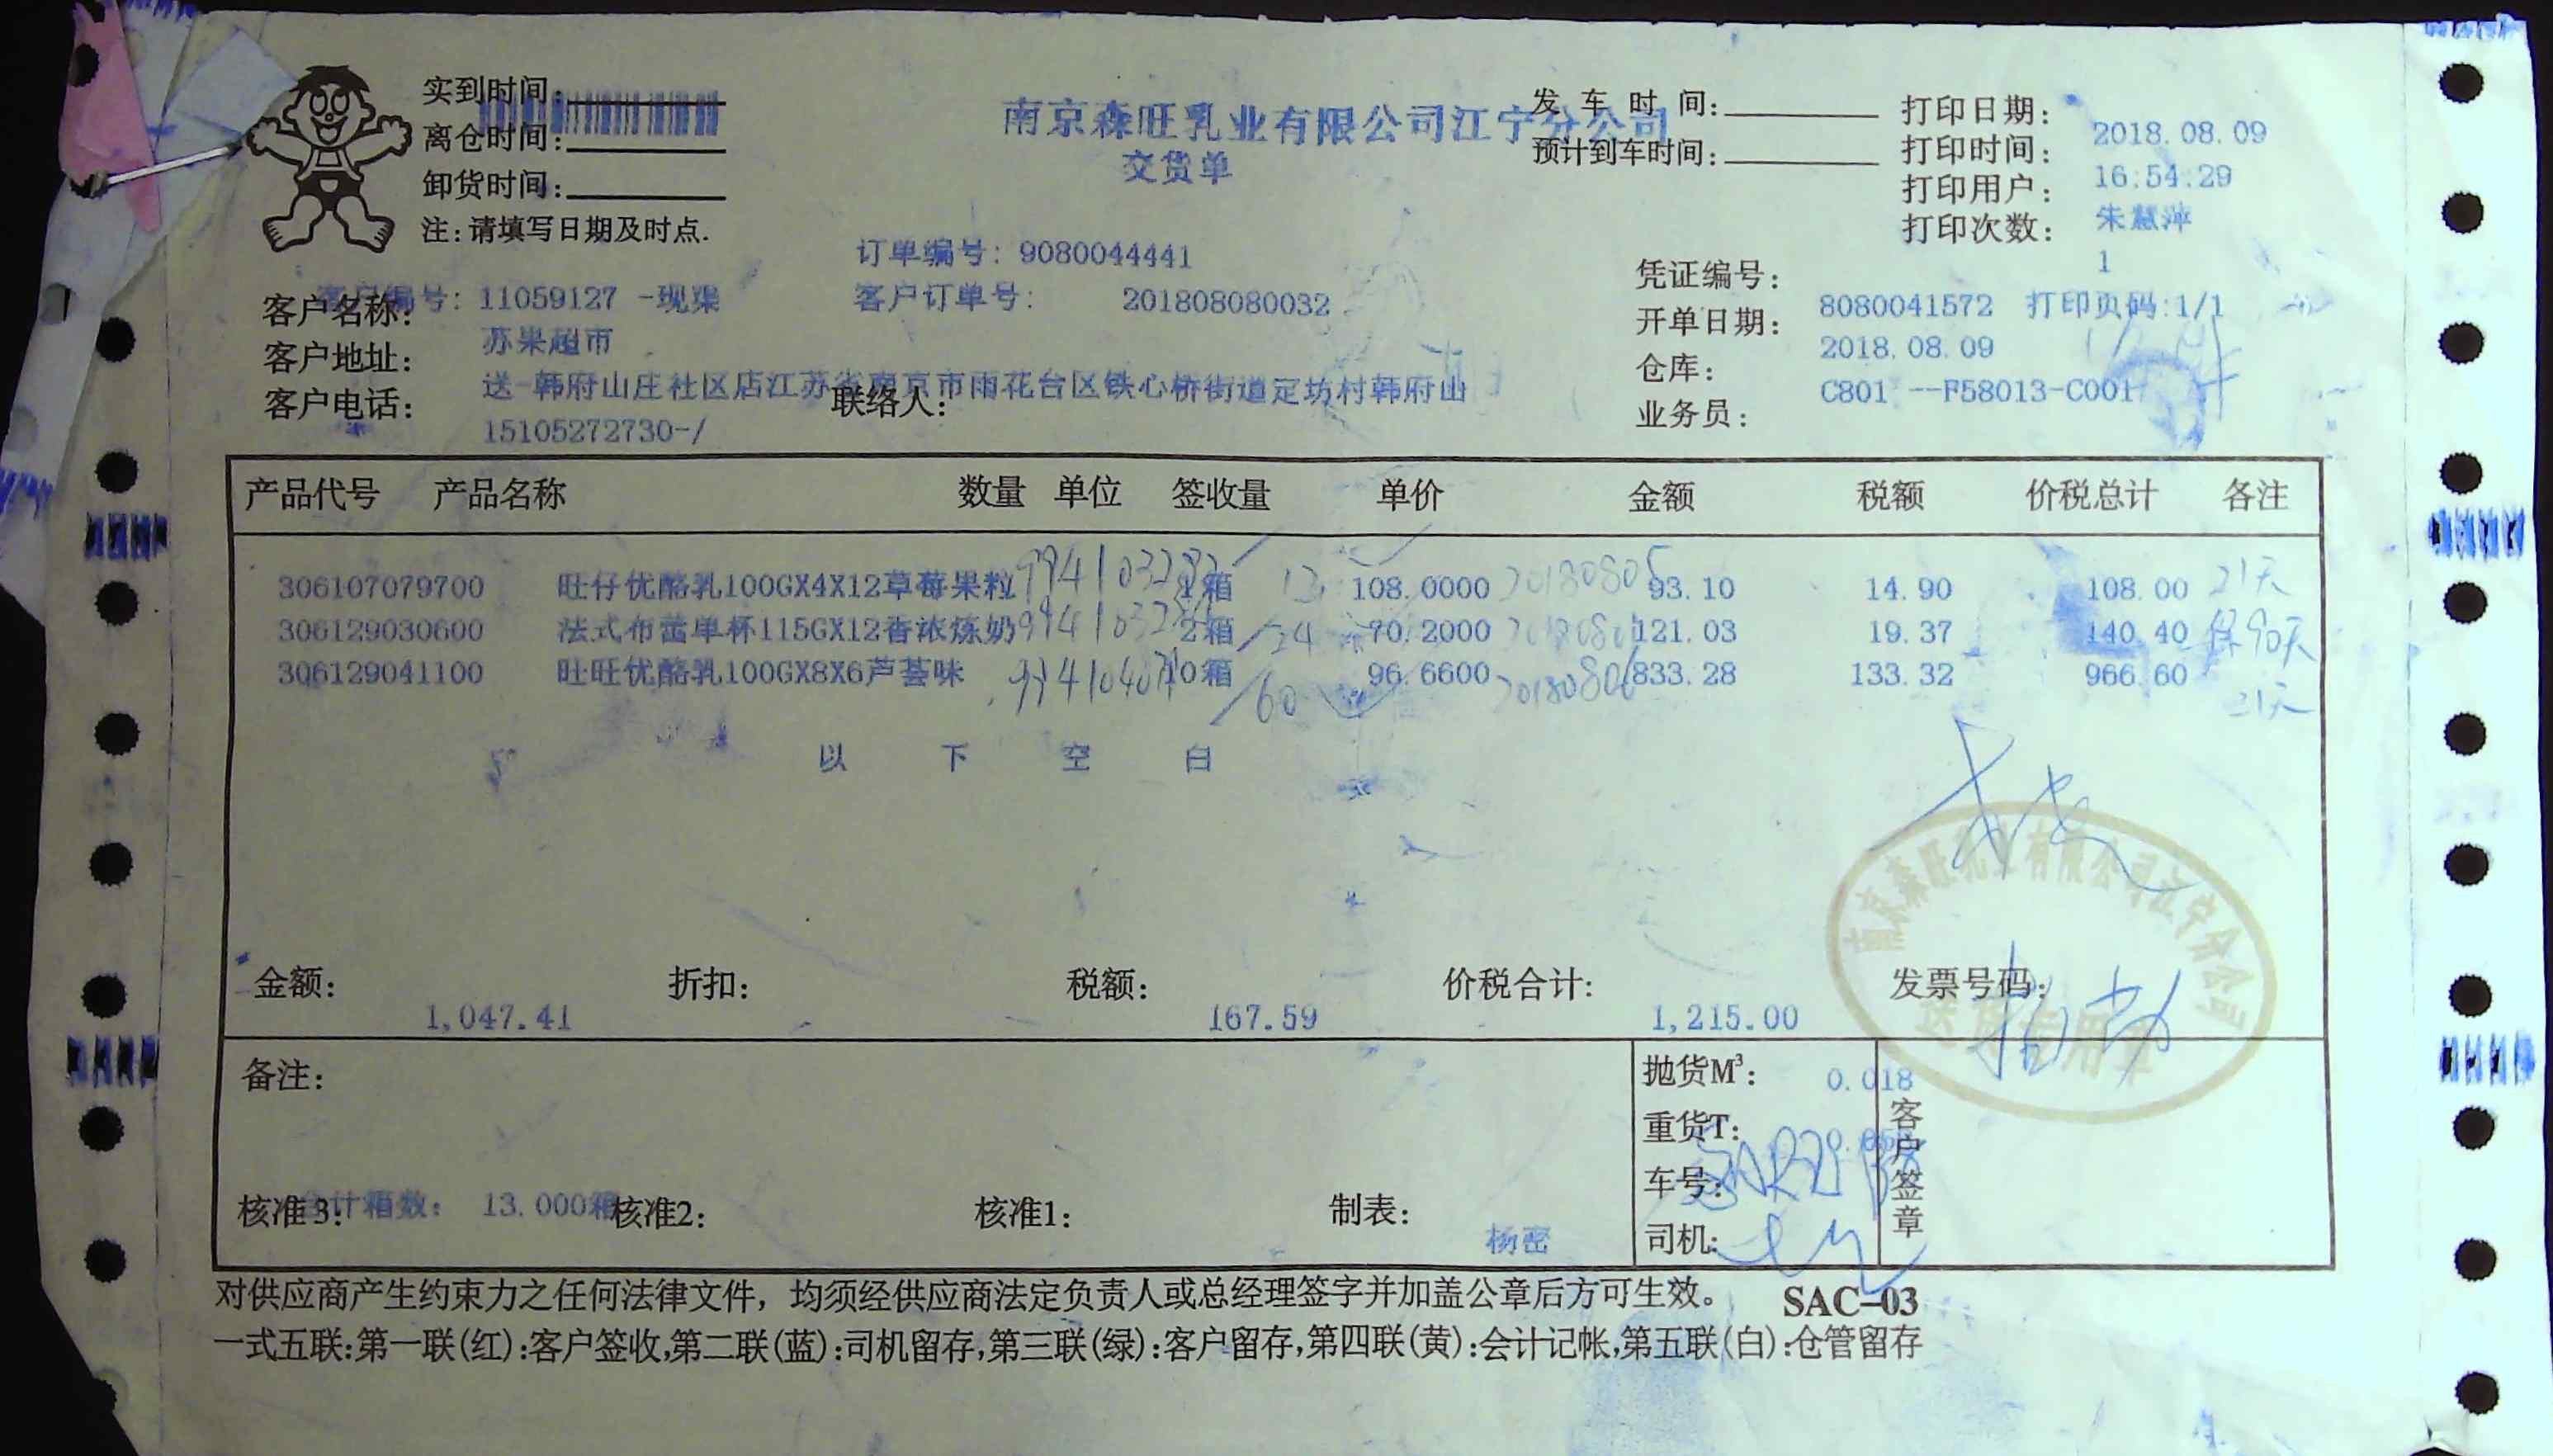 实到时间:
离仓时间:
卸货时间:
注:请填写日期及时点.
南京森旺乳业有限公司江宁分公司
交货单
发车时间:
预计到车时间:
打印日期: 2018.08.09
打印时间: 16:54:29
打印用户: 朱慧萍
打印次数: 1
订单编号: 9080044441
客户编号: 11059127 -现渠
客户订单号: 201808080032
凭证编号: 8080041572 打印页码:1/1
客户名称: 苏果超市
开单日期: 2018.08.09
客户地址: 送-韩府山庄社区店江苏省南京市雨花台区铁心桥街道定坊村韩府山
仓库: C801 --F58013-C001
客户电话: 15105272730-/
联络人:
业务员:
产品代号 产品名称 数量 单位 签收量 单价 金额 税额 价税总计 各注
306107079700 旺仔优酪乳100GX4X12草莓果粒 1箱 108.0000 20180805 93.10 14.90 108.00 21天
306129030600 法式布蕾单杯115GX12香浓炼奶 2箱 24 70.2000 121.03 19.37 140.40 保90天
306129041100 旺旺优酪乳100GX8X6芦荟味 10箱 60 96.6600 20180806 833.28 133.32 966.60 21天
以下空白
金额: 1,047.41 折扣: 税额: 167.59 价税合计: 1,215.00 发票号码:
南京森旺乳业有限公司江宁分公司
备注:
抛货M³: 0.018
重货T:
车号:
司机:
客户签章
合计箱数: 13.000箱
核准3: 核准2: 核准1: 制表: 杨密
对供应商产生约束力之任何法律文件，均须经供应商法定负责人或总经理签字并加盖公章后方可生效。 SAC-03
一式五联:第一联(红):客户签收,第二联(蓝):司机留存,第三联(绿):客户留存,第四联(黄):会计记帐,第五联(白):仓管留存